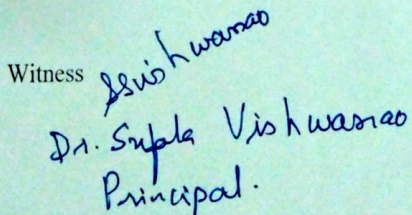 Witness SSvishwasrao
Dr. Supla Vishwasrao
Principal.